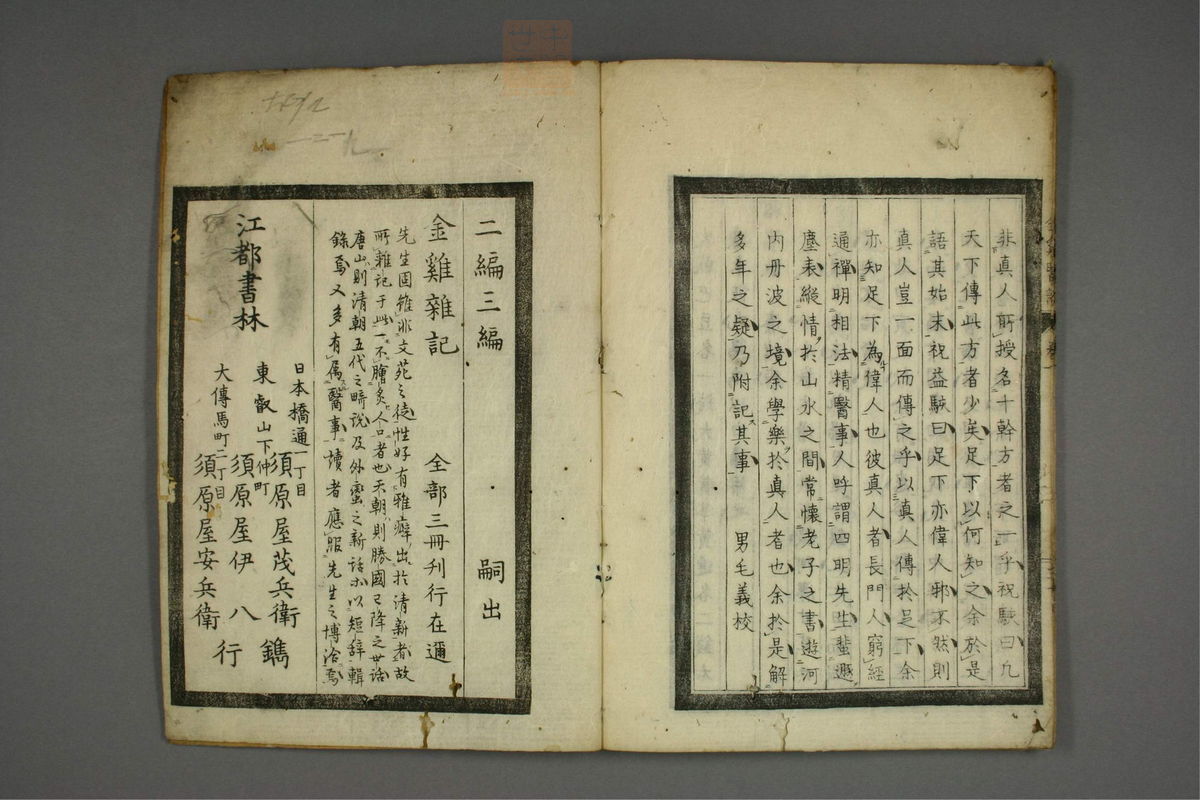 非真人所授名十幹方者之一乎祝駃曰凡
天下傳此方者少矣足下以何知之余於是
語其始末祝益駃曰足下亦偉人邪不然則
真人豈一面而傳之乎以真人傳於足下余
亦知足下為偉人也彼真人者長門人窮經
通禪明相法精醫事人呼謂四明先生蜚遯
塵表縱情於山水之間常懷老子之書遊河
内丹波之境余學樂於真人者也余於是解
多年之疑乃附記其事　男毛義校
二編三編　嗣出
金雞雜記　全部三冊刊行在邇
先生固雖非文苑之徒性好有雅癖出於清新者故
所雜記于此一不膾炙人口者也本朝則勝國已降之世話
唐山則清朝五代之晴說及外蛮之新話亦以短辞輯
錄焉又多有属醫事讀者應服先生之博洽焉
江都書林
日本橋通一丁目　須原屋茂兵衛
東叡山下仲町　須原屋伊八
大傳馬町二丁目　須原屋安兵衛
鐫行